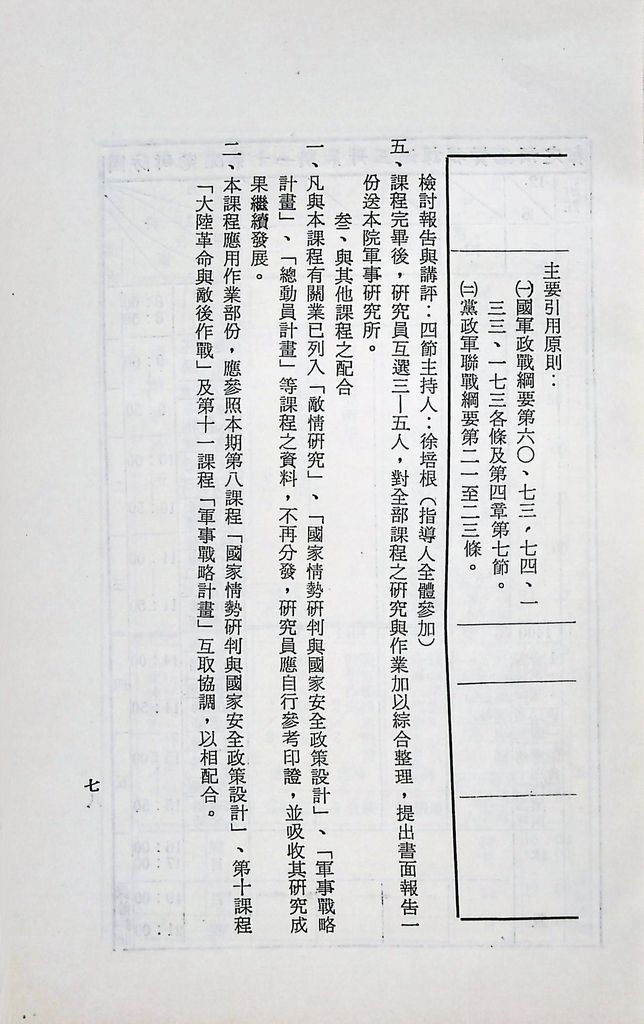 主要引用原則：
㈠國軍政戰綱要第六〇、七三，七四、一
三三、一七三各條及第四章第七節。
㈡黨政軍聯戰綱要第二一至二三條。
檢討報告與講評：四節主持人：徐培根（指導人全體參加）
五、課程完畢後，研究員互選三—五人，對全部課程之研究與作業加以綜合整理，提出書面報告一
份送本院軍事研究所。
叁、與其他課程之配合
一、凡與本課程有關業已列入「敵情研究」、「國家情勢研判與國家安全政策設計」、「軍事戰略
計畫」、「總動員計畫」等課程之資料，不再分發，研究員應自行參考印證，並吸收其研究成
果繼續發展。
二、本課程應用作業部份，應參照本期第八課程「國家情勢研判與國家安全政策設計」、第十課程
「大陸革命與敵後作戰」及第十一課程「軍事戰略計畫」互取協調，以相配合。
七